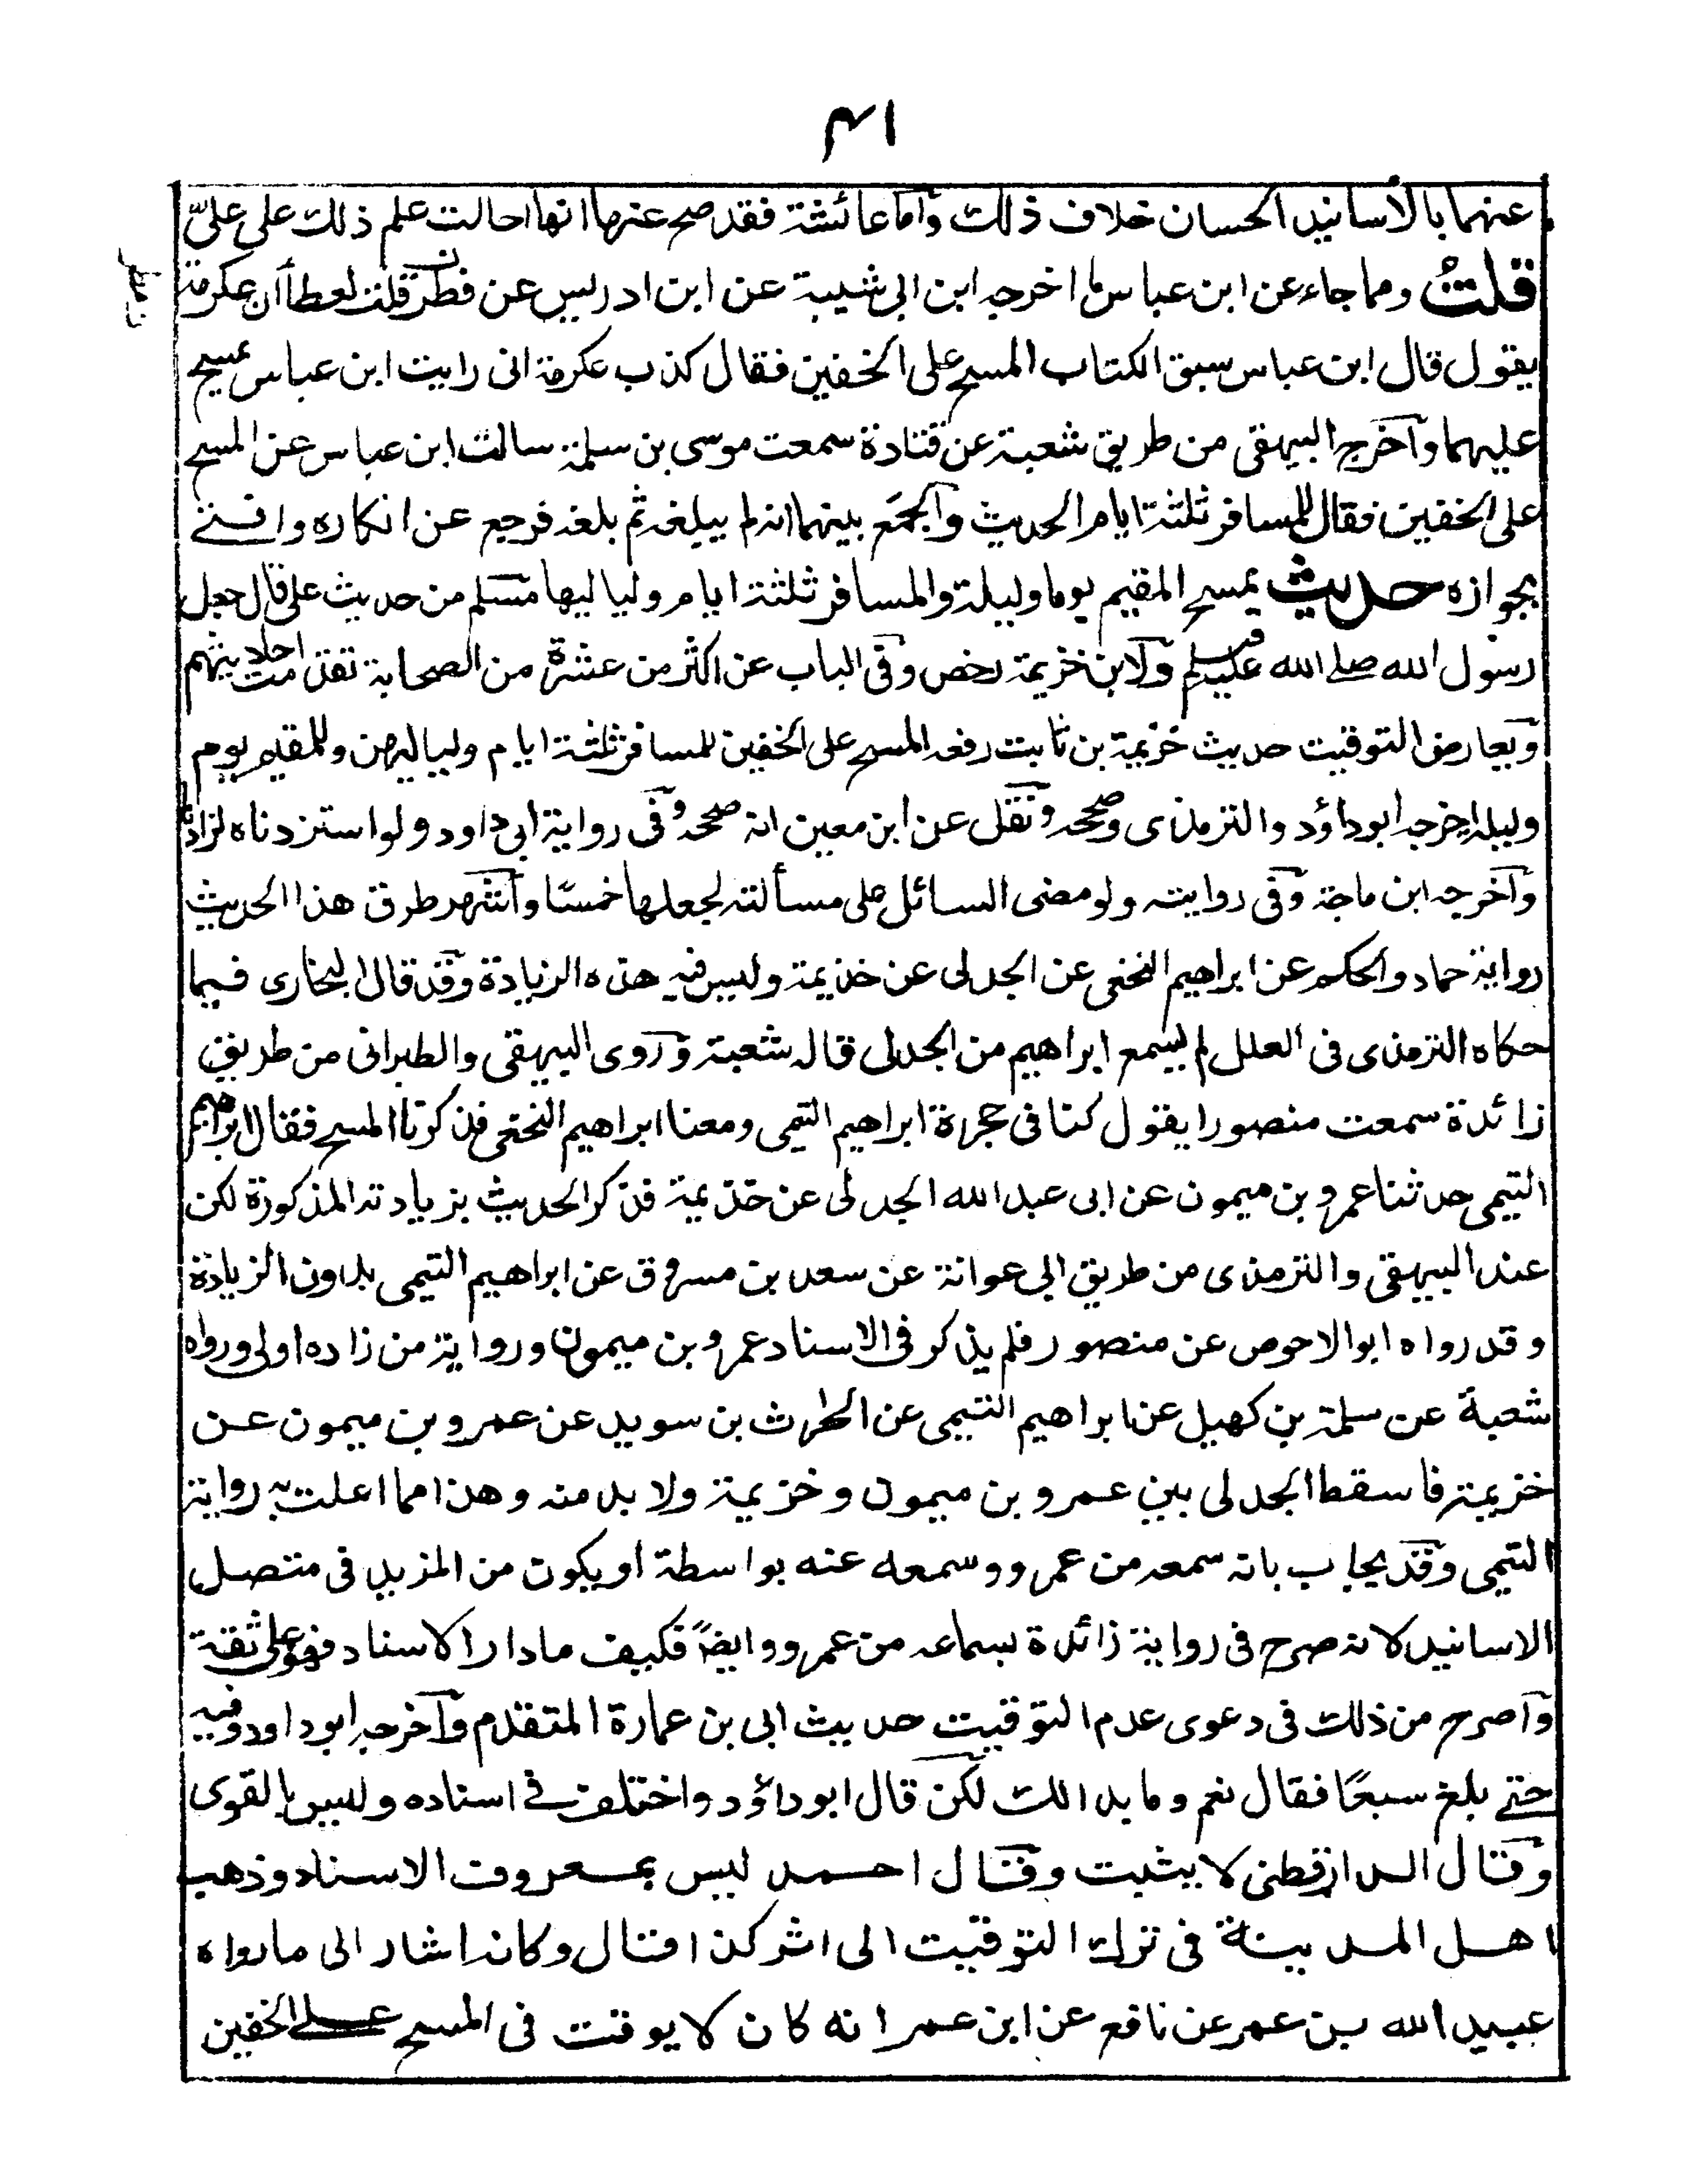 ٤١
عنهما بالأسانيد الحسان خلاف ذلك وأما عائشة فقد صح عنها انها احالت علم ذلك على علىّ
قلتُ ومما جاء عن ابن عباس ما اخرجه ابن ابى شيبة عن ابن ادريس عن فطر قلت لعطاء ان عكرمة
يقول قال ابن عباس سبق الكتاب المسح على الخفين فقال كذب عكرمة انى رايت ابن عباس يمسح
عليهما وآخرج البيهقى من طريق شعبة عن قتادة سمعت موسى بن سلمة سالت ابن عباس عن المسح
على الخفين فقال للمسافر ثلثة ايام الحديث والجمع بينهما انه لم يبلغه ثم بلغه فرجع عن انكاره وافتے
بجوازه حديث يمسح المقيم يوما وليلة والمسافر ثلثة ايام ولياليها مسلم من حديث على قال جعل
رسول الله صلے الله عليه وسلم ولابن خزيمة رخص وفى الباب عن اكثر من عشرة من الصحابة تقدمت احاديثهم
ويعارض التوقيت حديث خزيمة بن ثابت رفعه المسح على الخفين للمسافر ثلثة ايام ولياليهن وللمقيم يوم
وليلة اخرجه ابوداؤد والترمذى وصححه ونقل عن ابن معين انه صححه وفى رواية ابى داود ولو استزدناه لزادنا
وآخرجه ابن ماجة وفى روايته ولو مضى السائل على مسألته لجعلها خمسًا وآشهر طرق هذا الحديث
رواية حماد والحكم عن ابراهيم النخعى عن الجدلى عن خزيمة وليس فيه هذه الزيادة وقد قال البخارى فيما
حكاه الترمذى فى العلل لم يسمع ابراهيم من الجدلى قاله شعبة وروى البيهقى والطبرانى من طريق
زائدة سمعت منصورا يقول كنا فى حجرة ابراهيم التيمى ومعنا ابراهيم النخعى فذكرنا المسح فقال ابراهيم
التيمى حدثنا عمرو بن ميمون عن ابى عبد الله الجدلى عن خذيمة فذكر الحديث بزيادته المذكورة لكن
عند البيهقى والترمذى من طريق ابى عوانة عن سعد بن مسروق عن ابراهيم التيمى بدون الزيادة
وقد رواه ابوالاحوص عن منصور فلم يذكر فى الاسناد عمرو بن ميمون ورواية من زاده اولى ورواه
شعبة عن سلمة بن كهيل عن ابراهيم التيمى عن الحارث بن سويد عن عمرو بن ميمون عن
خزيمة فاسقط الجدلى بين عمرو بن ميمون وخزيمة ولا بد منه وهذا مما اعلت به رواية
التيمى وقد يجاب بانه سمعه من عمرو وسمعه عنه بواسطة او يكون من المزيد فى متصل
الاسانيد لانه صرح فى رواية زائدة بسماعه من عمرو وايضًا فكيف مادار الاسناد فهو على ثقة
وآصرح من ذلك فى دعوى عدم التوقيت حديث ابى بن عمارة المتقدم وآخرجه ابوداود وفيه
حتے بلغ سبعًا فقال نعم وما بدا لك لكن قال ابوداؤد واختلف فے اسناده وليس بالقوى
وقال الدارقطنى لا يثبت وقال احمد ليس بمعروف الاسناد وذهب
اهل المدينة فى ترك التوقيت الى اثر كذا قال وكانه اشار الى مارواه
عبيد الله بن عمر عن نافع عن ابن عمر انه كان لا يوقت فى المسح علے الخفين